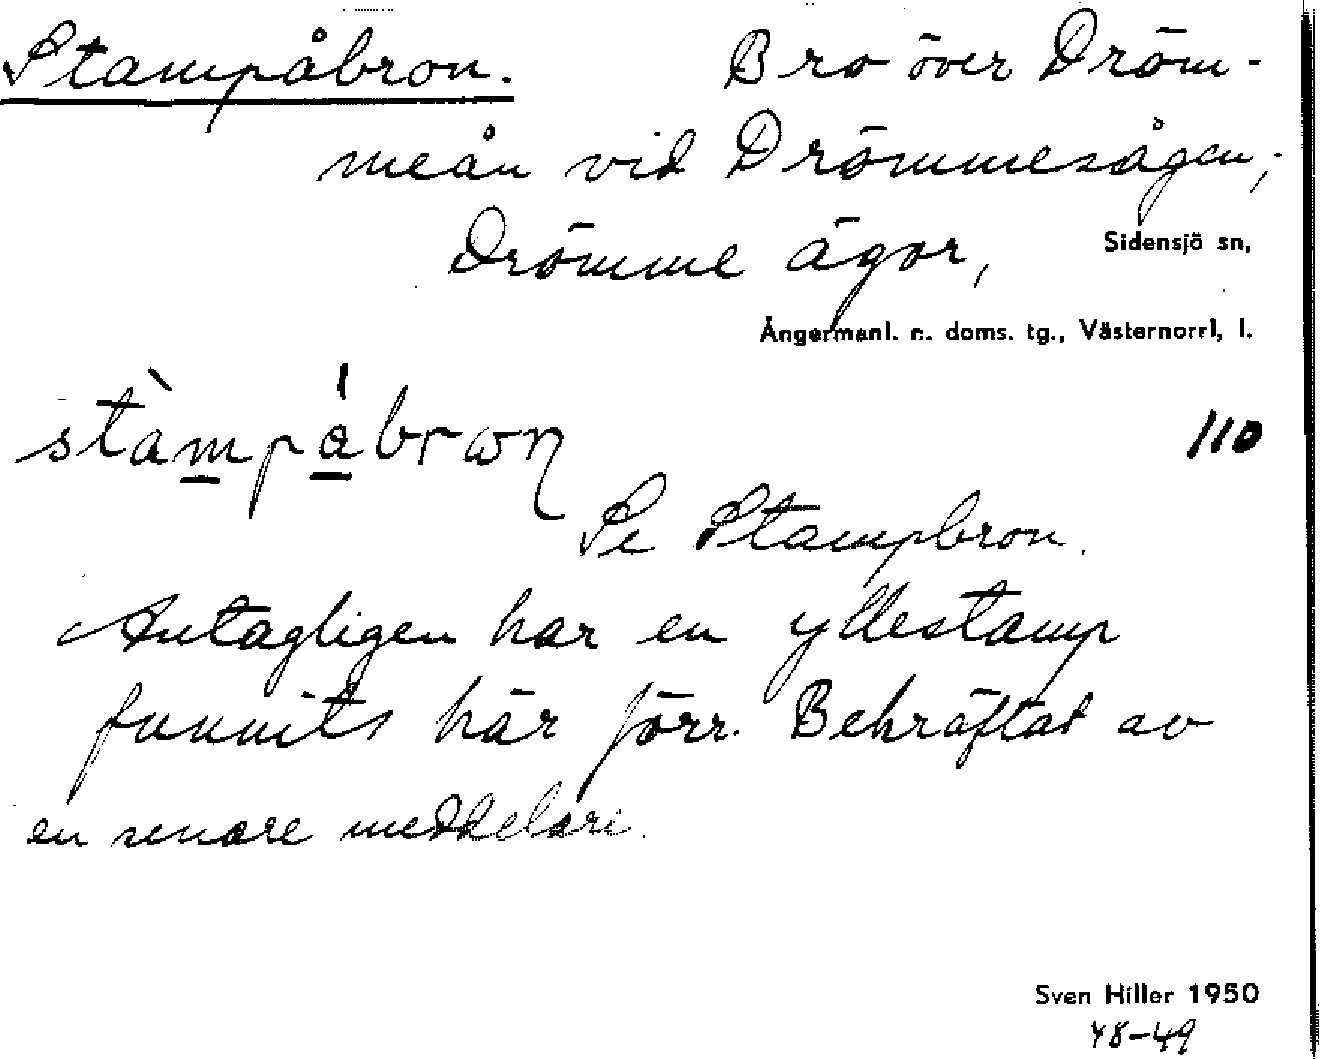 Stampåbron. Bro över Dröm-
meån vid Drömmesågen,
Drömme ägor, Sidensjö sn,
Ångermanl. n. doms. tg., Västernorrl, l.
110
Se Stampbron.
Antagligen har en yllestamp
funnits här förr. Bekräftat av
en senare meddelare.
Sven Hiller 1950
48-49